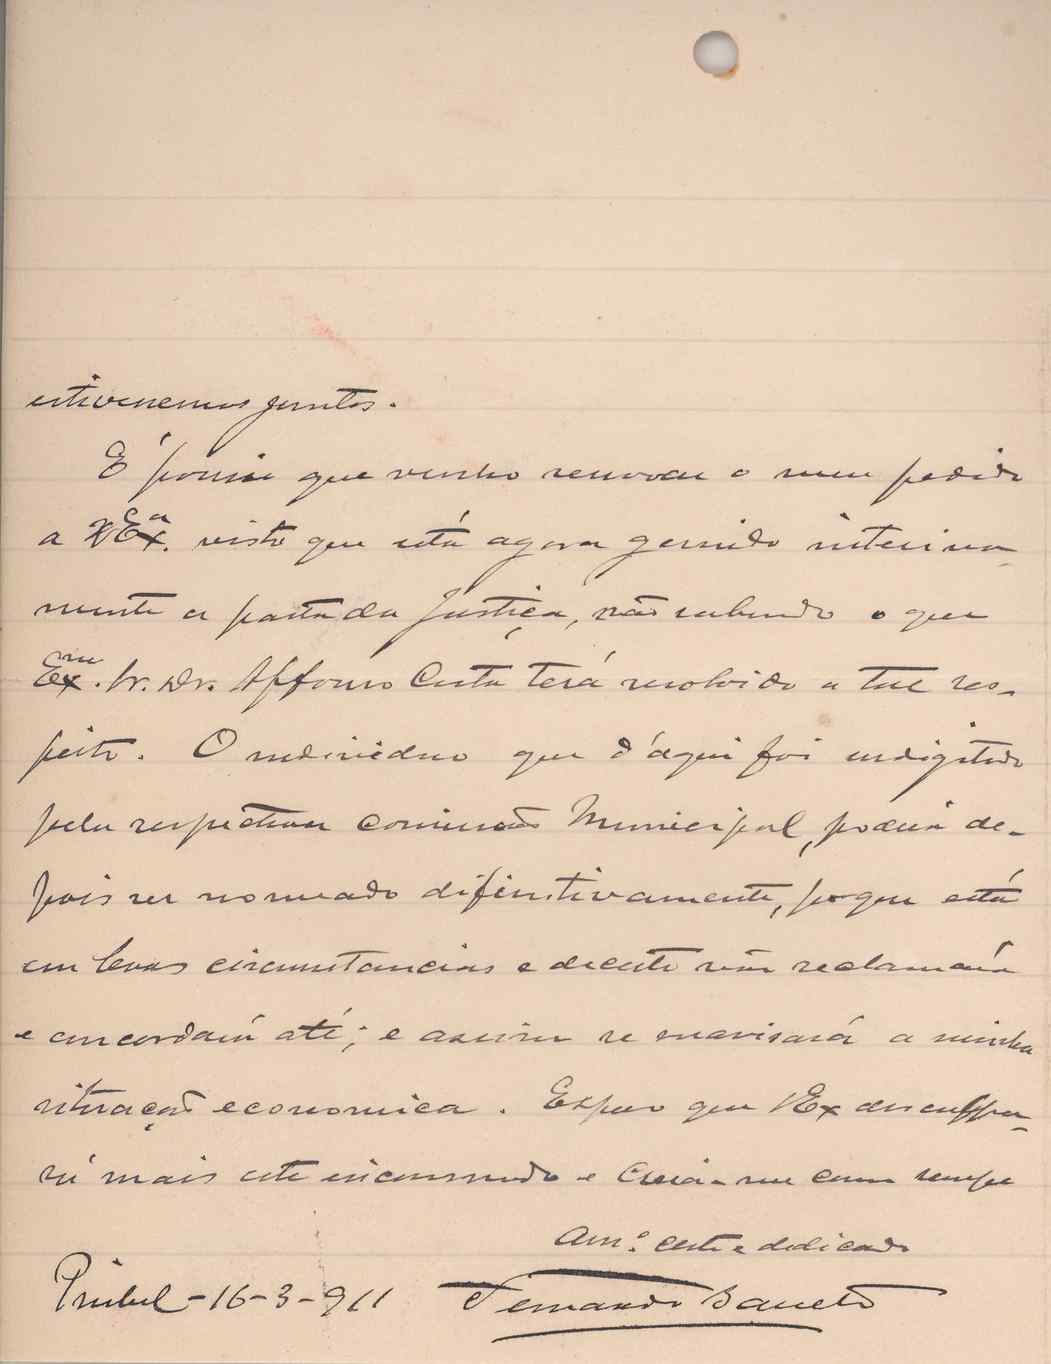 estivenemos juntos.
É porisso que venho renovar o meu pedido
a V Ex.ª visto que está agora gerindo interina-
mente a pasta da Justiça, não sabendo o que
Ex.mo Sr. Dr. Affonso Costa terá resolvido a tal res-
peito. O individuo que d'aqui foi indigitado
pela respectiva comissão Municipal, poderá de-
pois ser nomeado difinitivamente, porque está
em boas circunstancias e decerto não reclamará
e concordará até; e assim se suavisará a minha
situação economica. Espero que V Ex desculpa-
rá mais este incommodo e creia-me como sempre
Am.º certo e dedicado
-16-3-911 Fernando